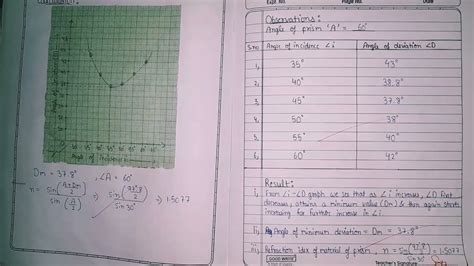 Angle of Incidence
Dm = 37.8°, ∠A = 60°
n = sin((A+Dm)/2) / sin(A/2) ⇒ sin(97.8/2) / sin 30° ⇒ 1.5077
Expt. No.
Page No.
Date
Observations:
Angle of prism 'A' = 60°
S.no. Angle of incidence ∠i Angle of deviation ∠D
1, 35° 43°
2, 40° 38.8°
3, 45° 37.8°
4, 50° 38°
5, 55° 40°
6, 60° 42°
Result:
i, From ∠i-∠D graph we see that as ∠i increases, ∠D first
decreases, attains a minimum value (Dm) & then again starts
increasing for further increase in ∠i
ii, Angle of minimum deviation = Dm = 37.8°
iii) Refractive index of material of prism, n = sin(97.8/2) / sin 30° = 1.5077
GOOD WRITE
Teacher's Signature